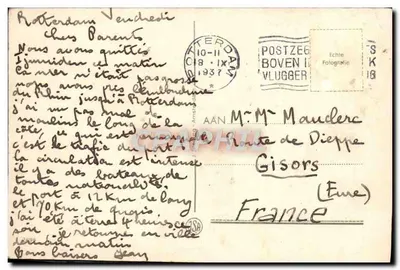 Rotterdam Vendredi
Chers Parents
Nous avons quittés
Ijmuiden ce matin
la mer n'était pas grosse
nous avons pris l'embouchure
du Rhin jusqu'à Rotterdam
j'ai vu pas mal de
moulins le long de la
côte, ce qui est
c'est le trafic du port
la circulation est intense
il y a des bateaux de
toutes nationalités.
le port à 12 Km de long
et 190 Km de quais
j'ai été à terre
soir je retourne en ville
demain matin
Bons baisers Jean
ROTTERDAM
10-11
18·IX
1937
POSTZEG
BOVEN
VLUGGER
Echte
Fotografie
AAN
Mr Me Mauderc
Route de Dieppe
Gisors
(Eure)
France